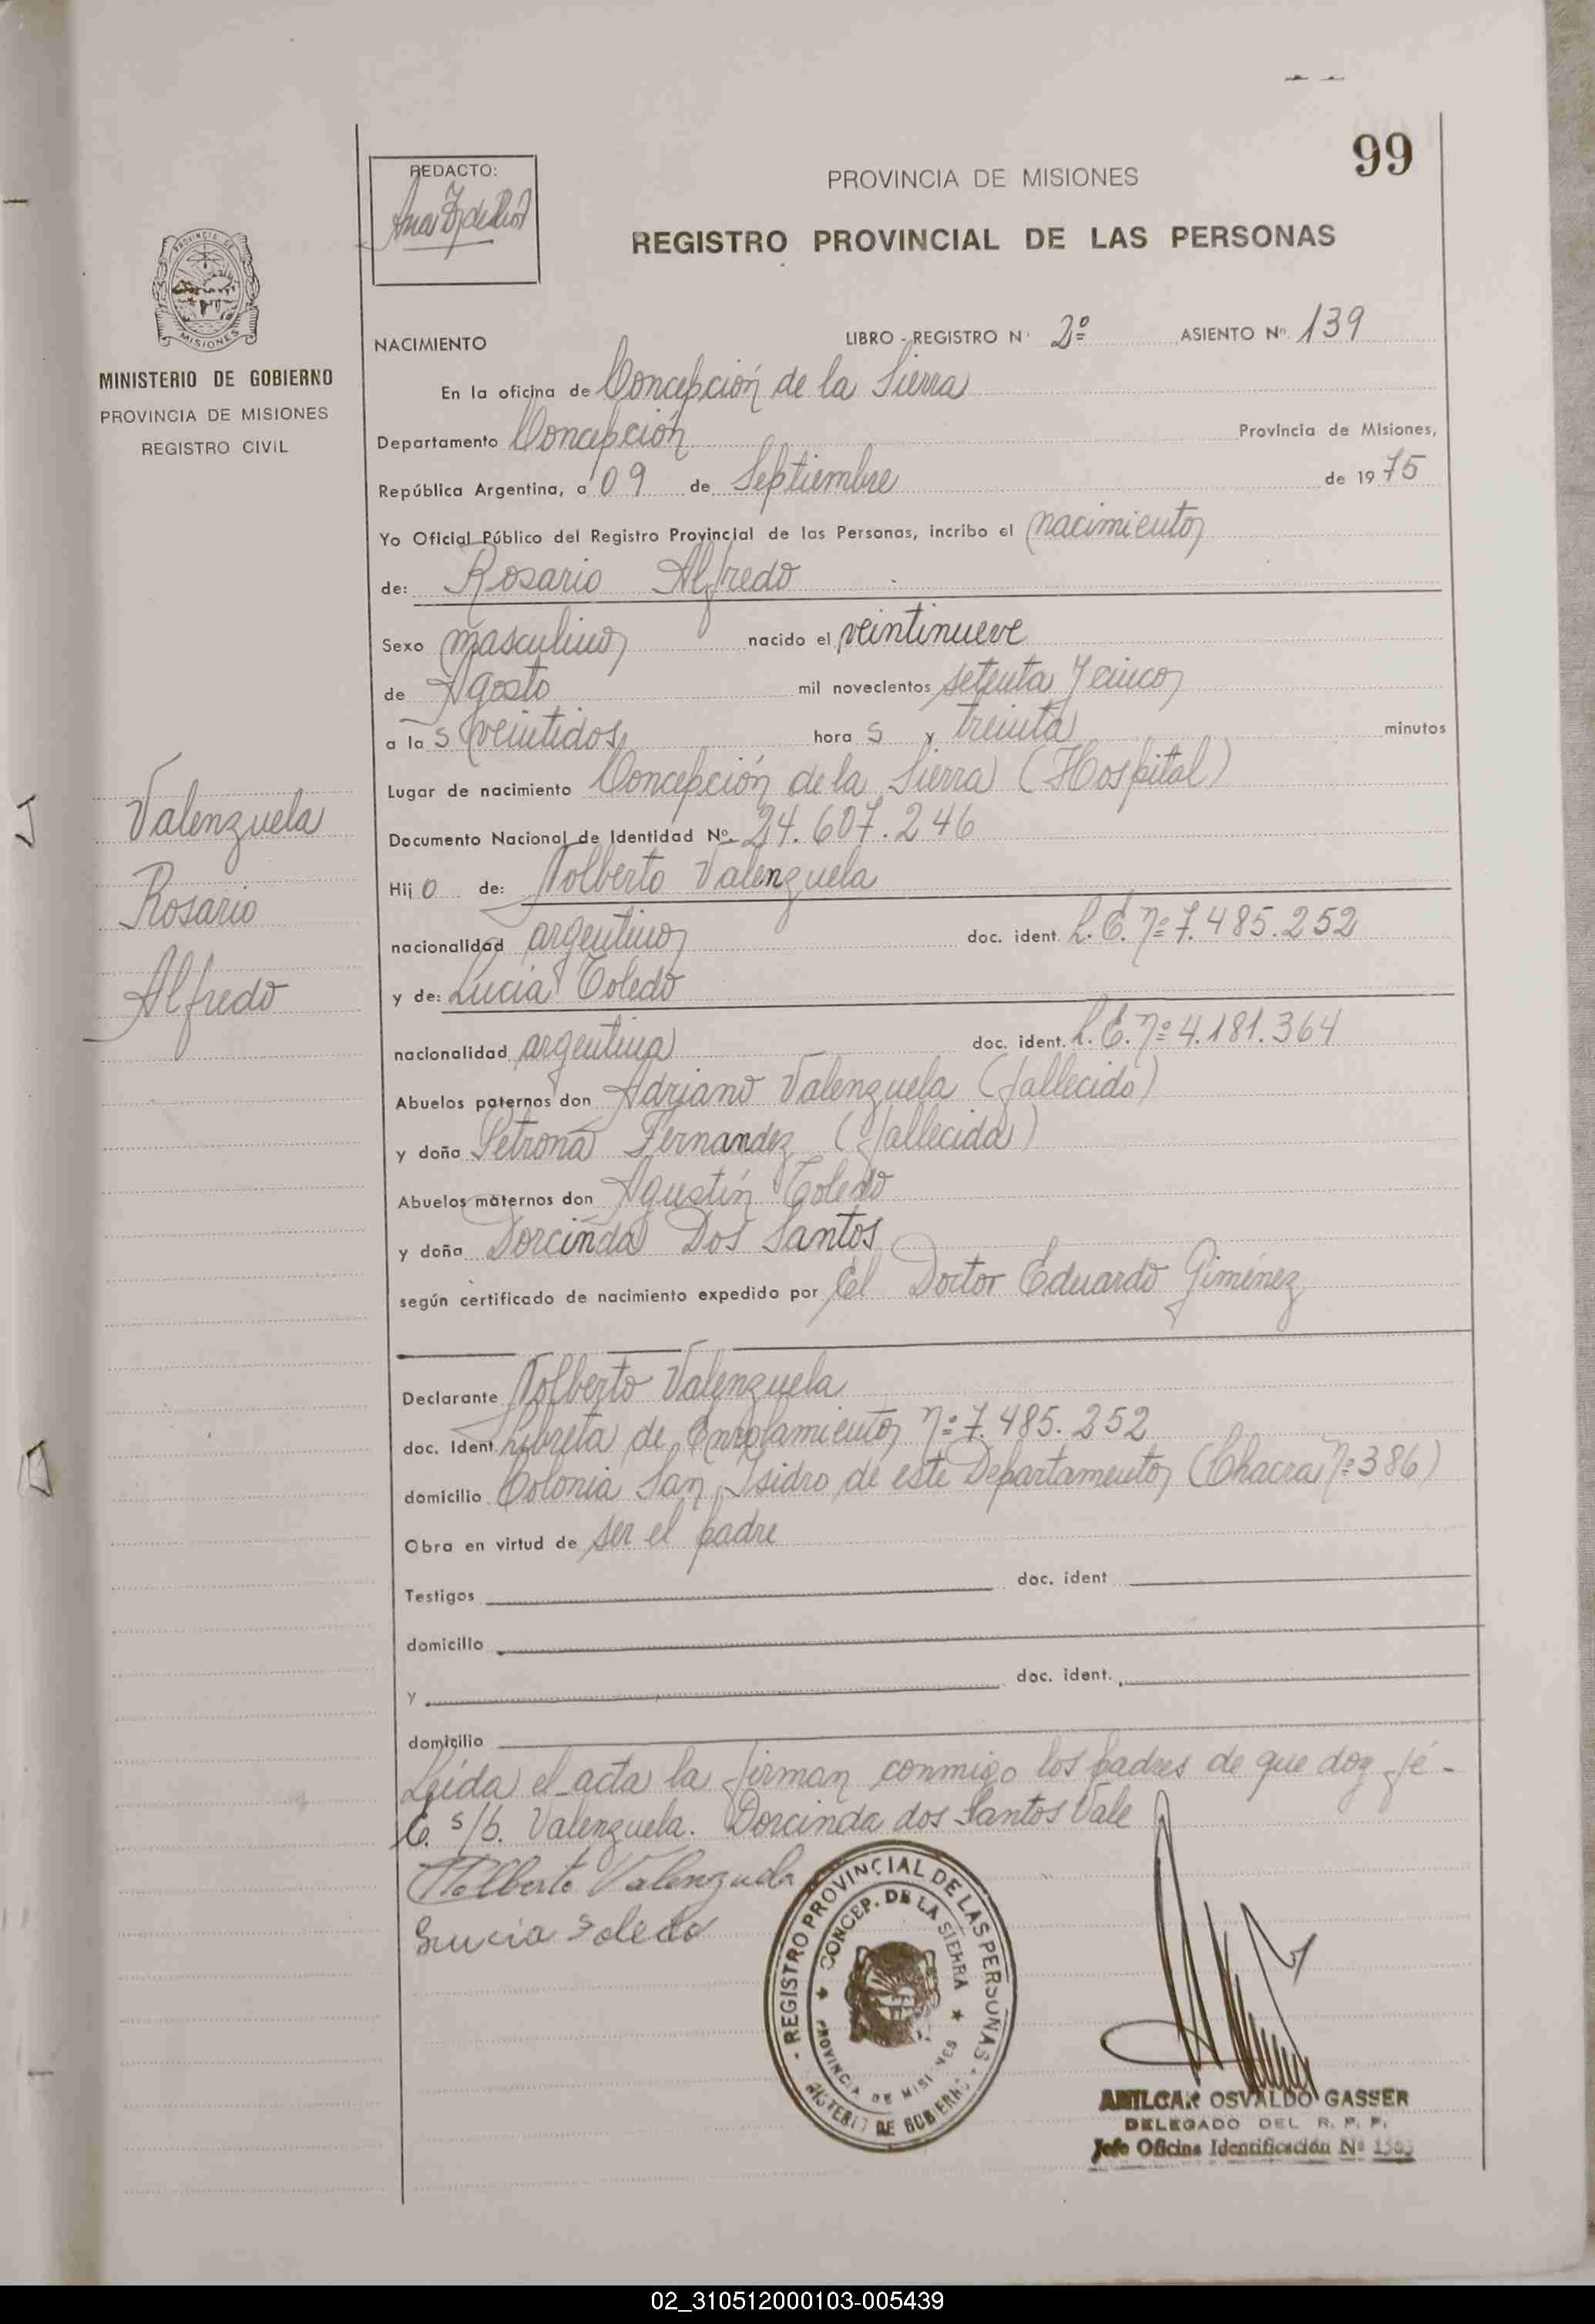 99
REDACTO:
PROVINCIA DE MISIONES
REGISTRO PROVINCIAL DE LAS PERSONAS
PROVINCIA DE
MISIONES
MINISTERIO DE GOBIERNO
PROVINCIA DE MISIONES
REGISTRO CIVIL
Valenzuela
Rosario
Alfredo
NACIMIENTO LIBRO - REGISTRO Nº 2º ASIENTO Nº 139
En la oficina de Concepción de la Sierra
Departamento Concepción Provincia de Misiones,
República Argentina, a 09 de Septiembre de 1975
Yo Oficial Público del Registro Provincial de las Personas, incribo el nacimiento
de: Rosario Alfredo
Sexo masculino nacido el veintinueve
de Agosto mil novecientos setenta y cinco
a las veintidos horas y treinta minutos
Lugar de nacimiento Concepción de la Sierra (Hospital)
Documento Nacional de Identidad Nº 24.607.246
Hijo de: Nolberto Valenzuela
nacionalidad argentino doc. ident. L.E. nº 7.485.252
y de: Lucia Toledo
nacionalidad argentina doc. ident. L.C. nº 4.181.364
Abuelos paternos don Adriano Valenzuela (fallecido)
y doña Petrona Fernandez (fallecida)
Abuelos maternos don Agustín Toledo
y doña Dorcinda Dos Santos
según certificado de nacimiento expedido por El Doctor Eduardo Giménez
Declarante Nolberto Valenzuela
doc. Ident. Libreta de Enrolamiento nº 7.485.252
domicilio Colonia San Isidro de este Departamento (Chacra nº 386)
Obra en virtud de ser el padre
Testigos doc. ident
domicilio
y doc. ident.
domicilio
Leída el acta la firman conmigo los padres de que doy fé -
E. s/b. Valenzuela. Dorcinda dos Santos Vale
Nolberto Valenzuela
Lucia Toledo
REGISTRO PROVINCIAL DE LAS PERSONAS
CONCEP. DE LA SIERRA
PROVINCIA DE MISIONES
MINISTERIO DE GOBIERNO
AMILCAR OSVALDO GASSER
DELEGADO DEL R. P. P.
Jefe Oficina Identificación Nº
02_310512000103-005439